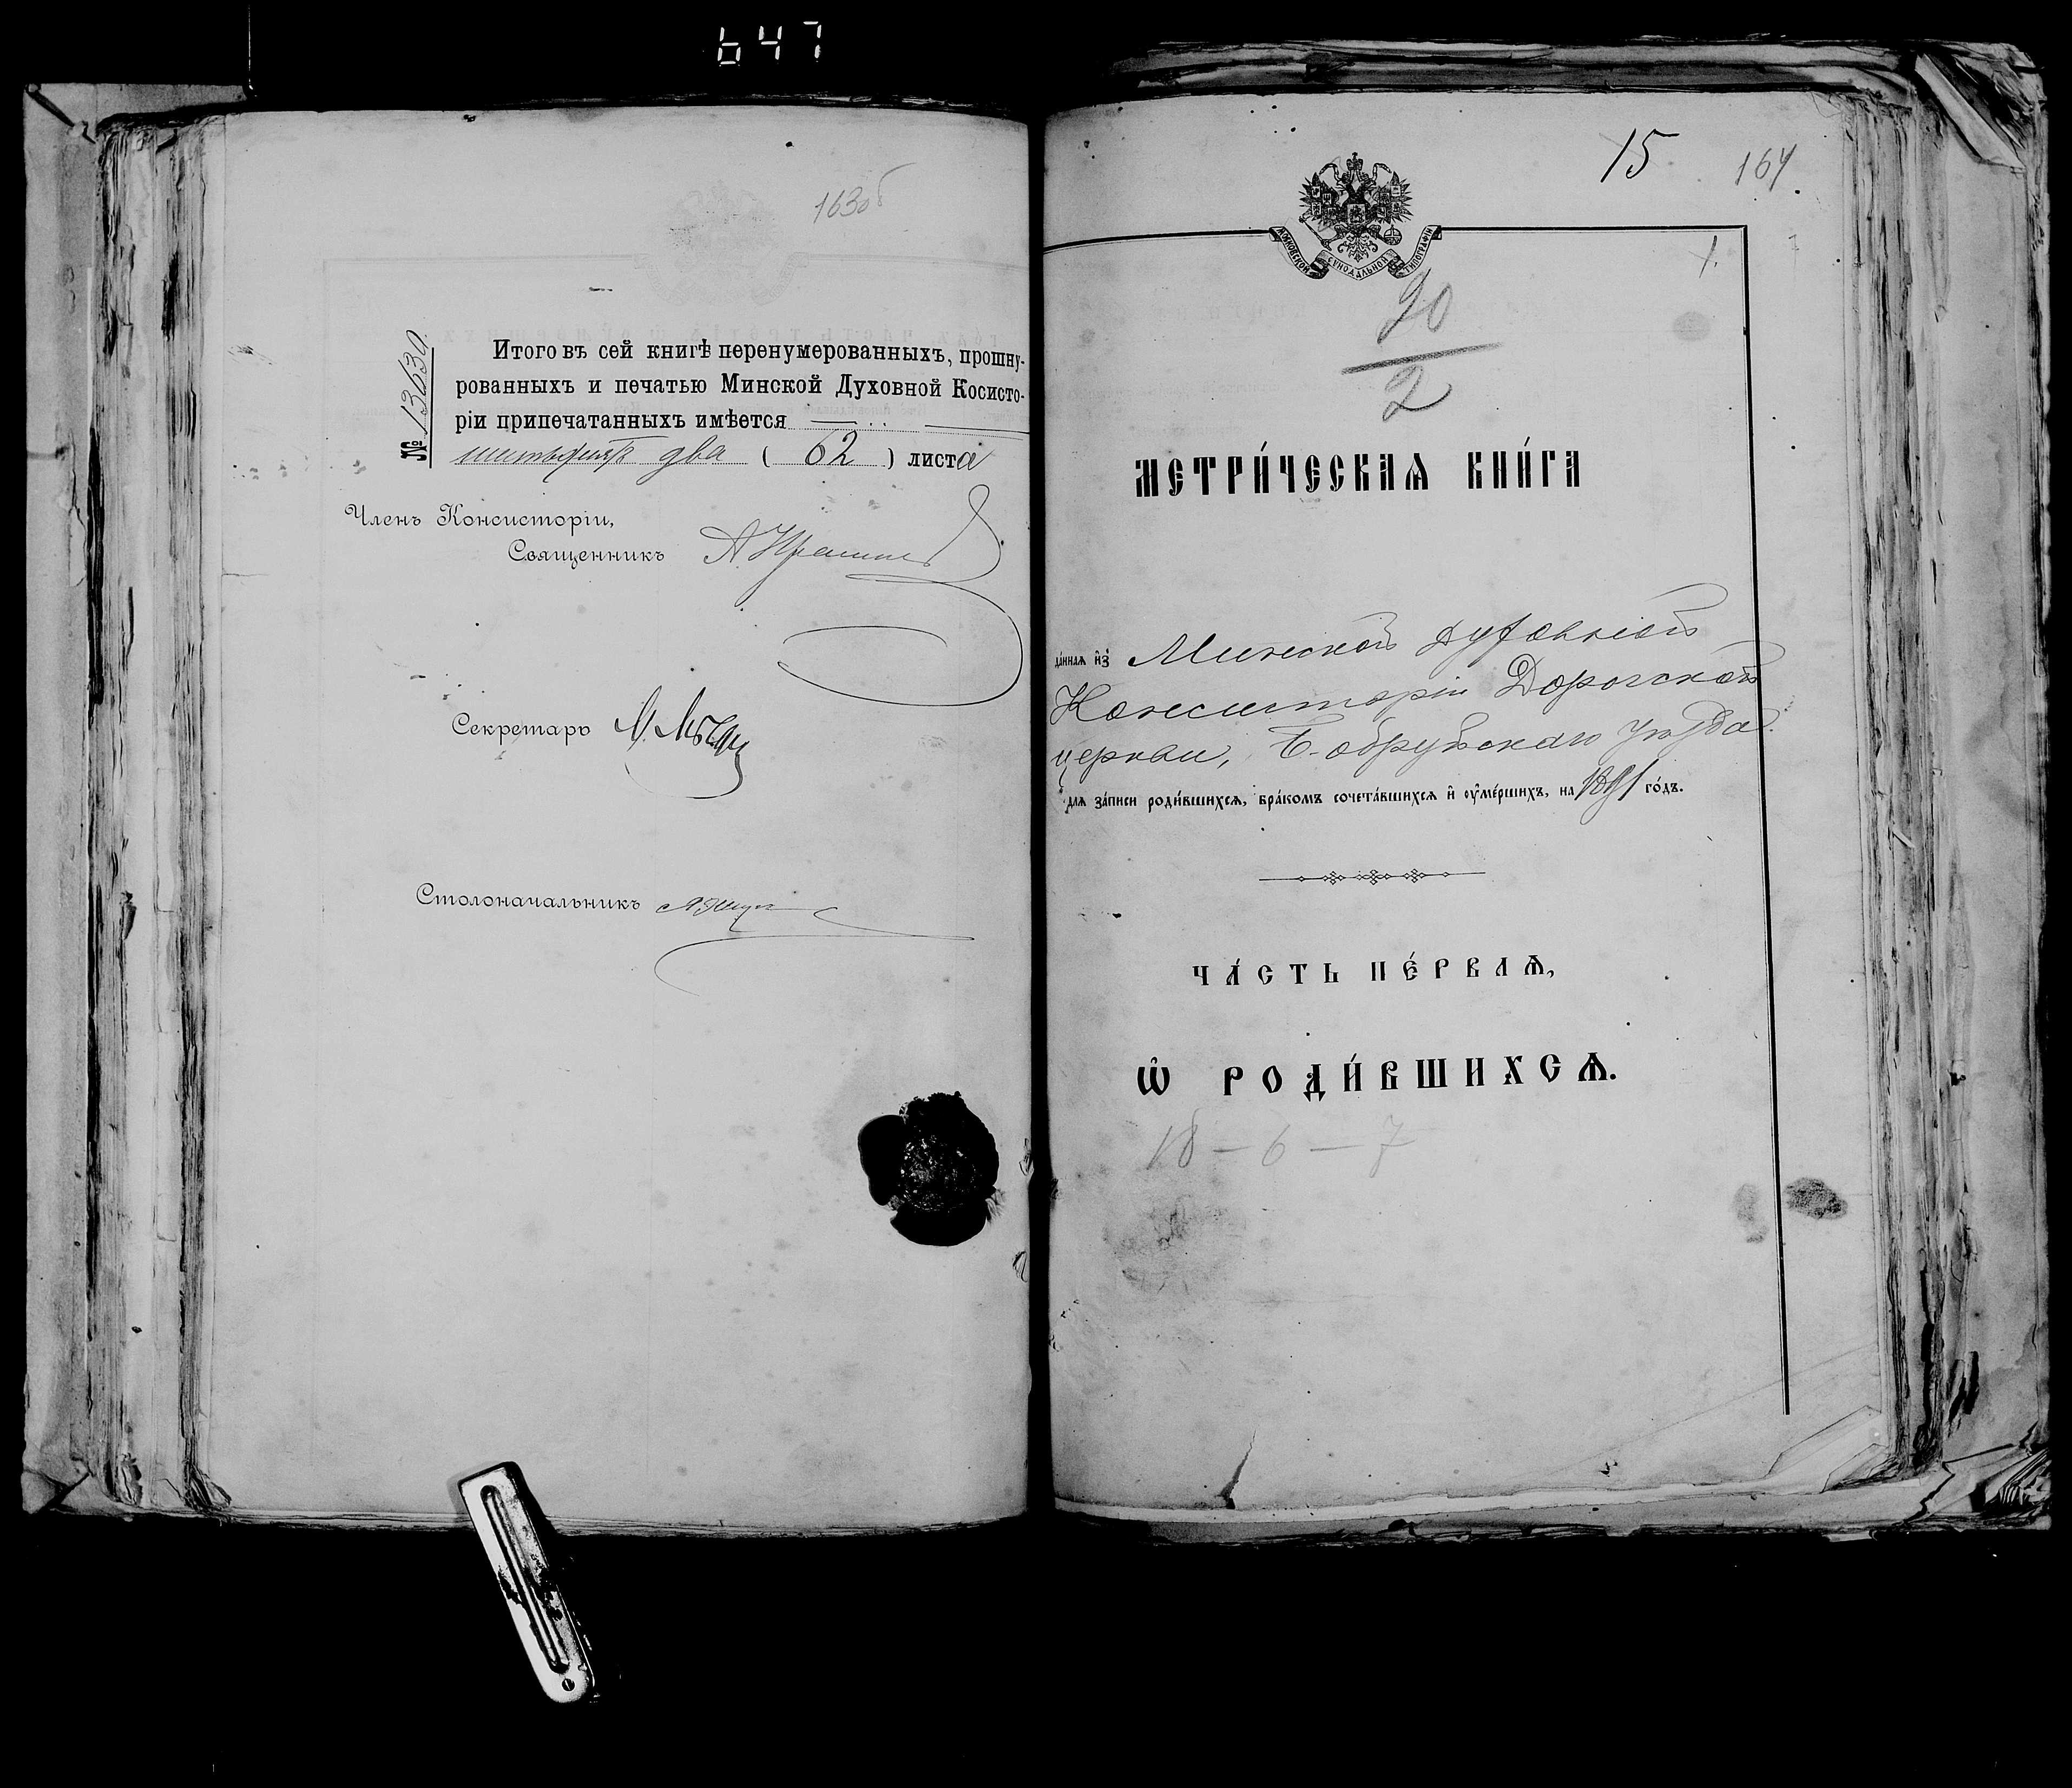 647
163об
№ 13630.
Итого въ сей книгѣ перенумерованныхъ, прошну-
рованныхъ и печатью Минской Духовной Косисто-
ріи припечатанныхъ имѣется
шестьдесятъ два ( 62 ) листа
Членъ Консисторіи,
Священникъ
Секретарь
Столоначальникъ
15 164.
МОСКОВСКОЙ СѴНОДАЛЬНОЙ ТИПОГРАФІИ
1.
20
2
МЕТРИ́ЧЕСКАѦ КНИ́ГА
да́ннаѧ и҆зъ Минской Духовной
Консисторіи Дорогской
церкви, Бобруйскаго уѣзда.
для за́писи роди́вшихсѧ, бра́комъ сочета́вшихсѧ и҆ оу҆ме́ршихъ, на 1891 го́дъ.
ЧА́СТЬ ПЕ́РВАѦ,
Ѡ҆ РОДИ́ВШИХСѦ.
18 - 6 - 7